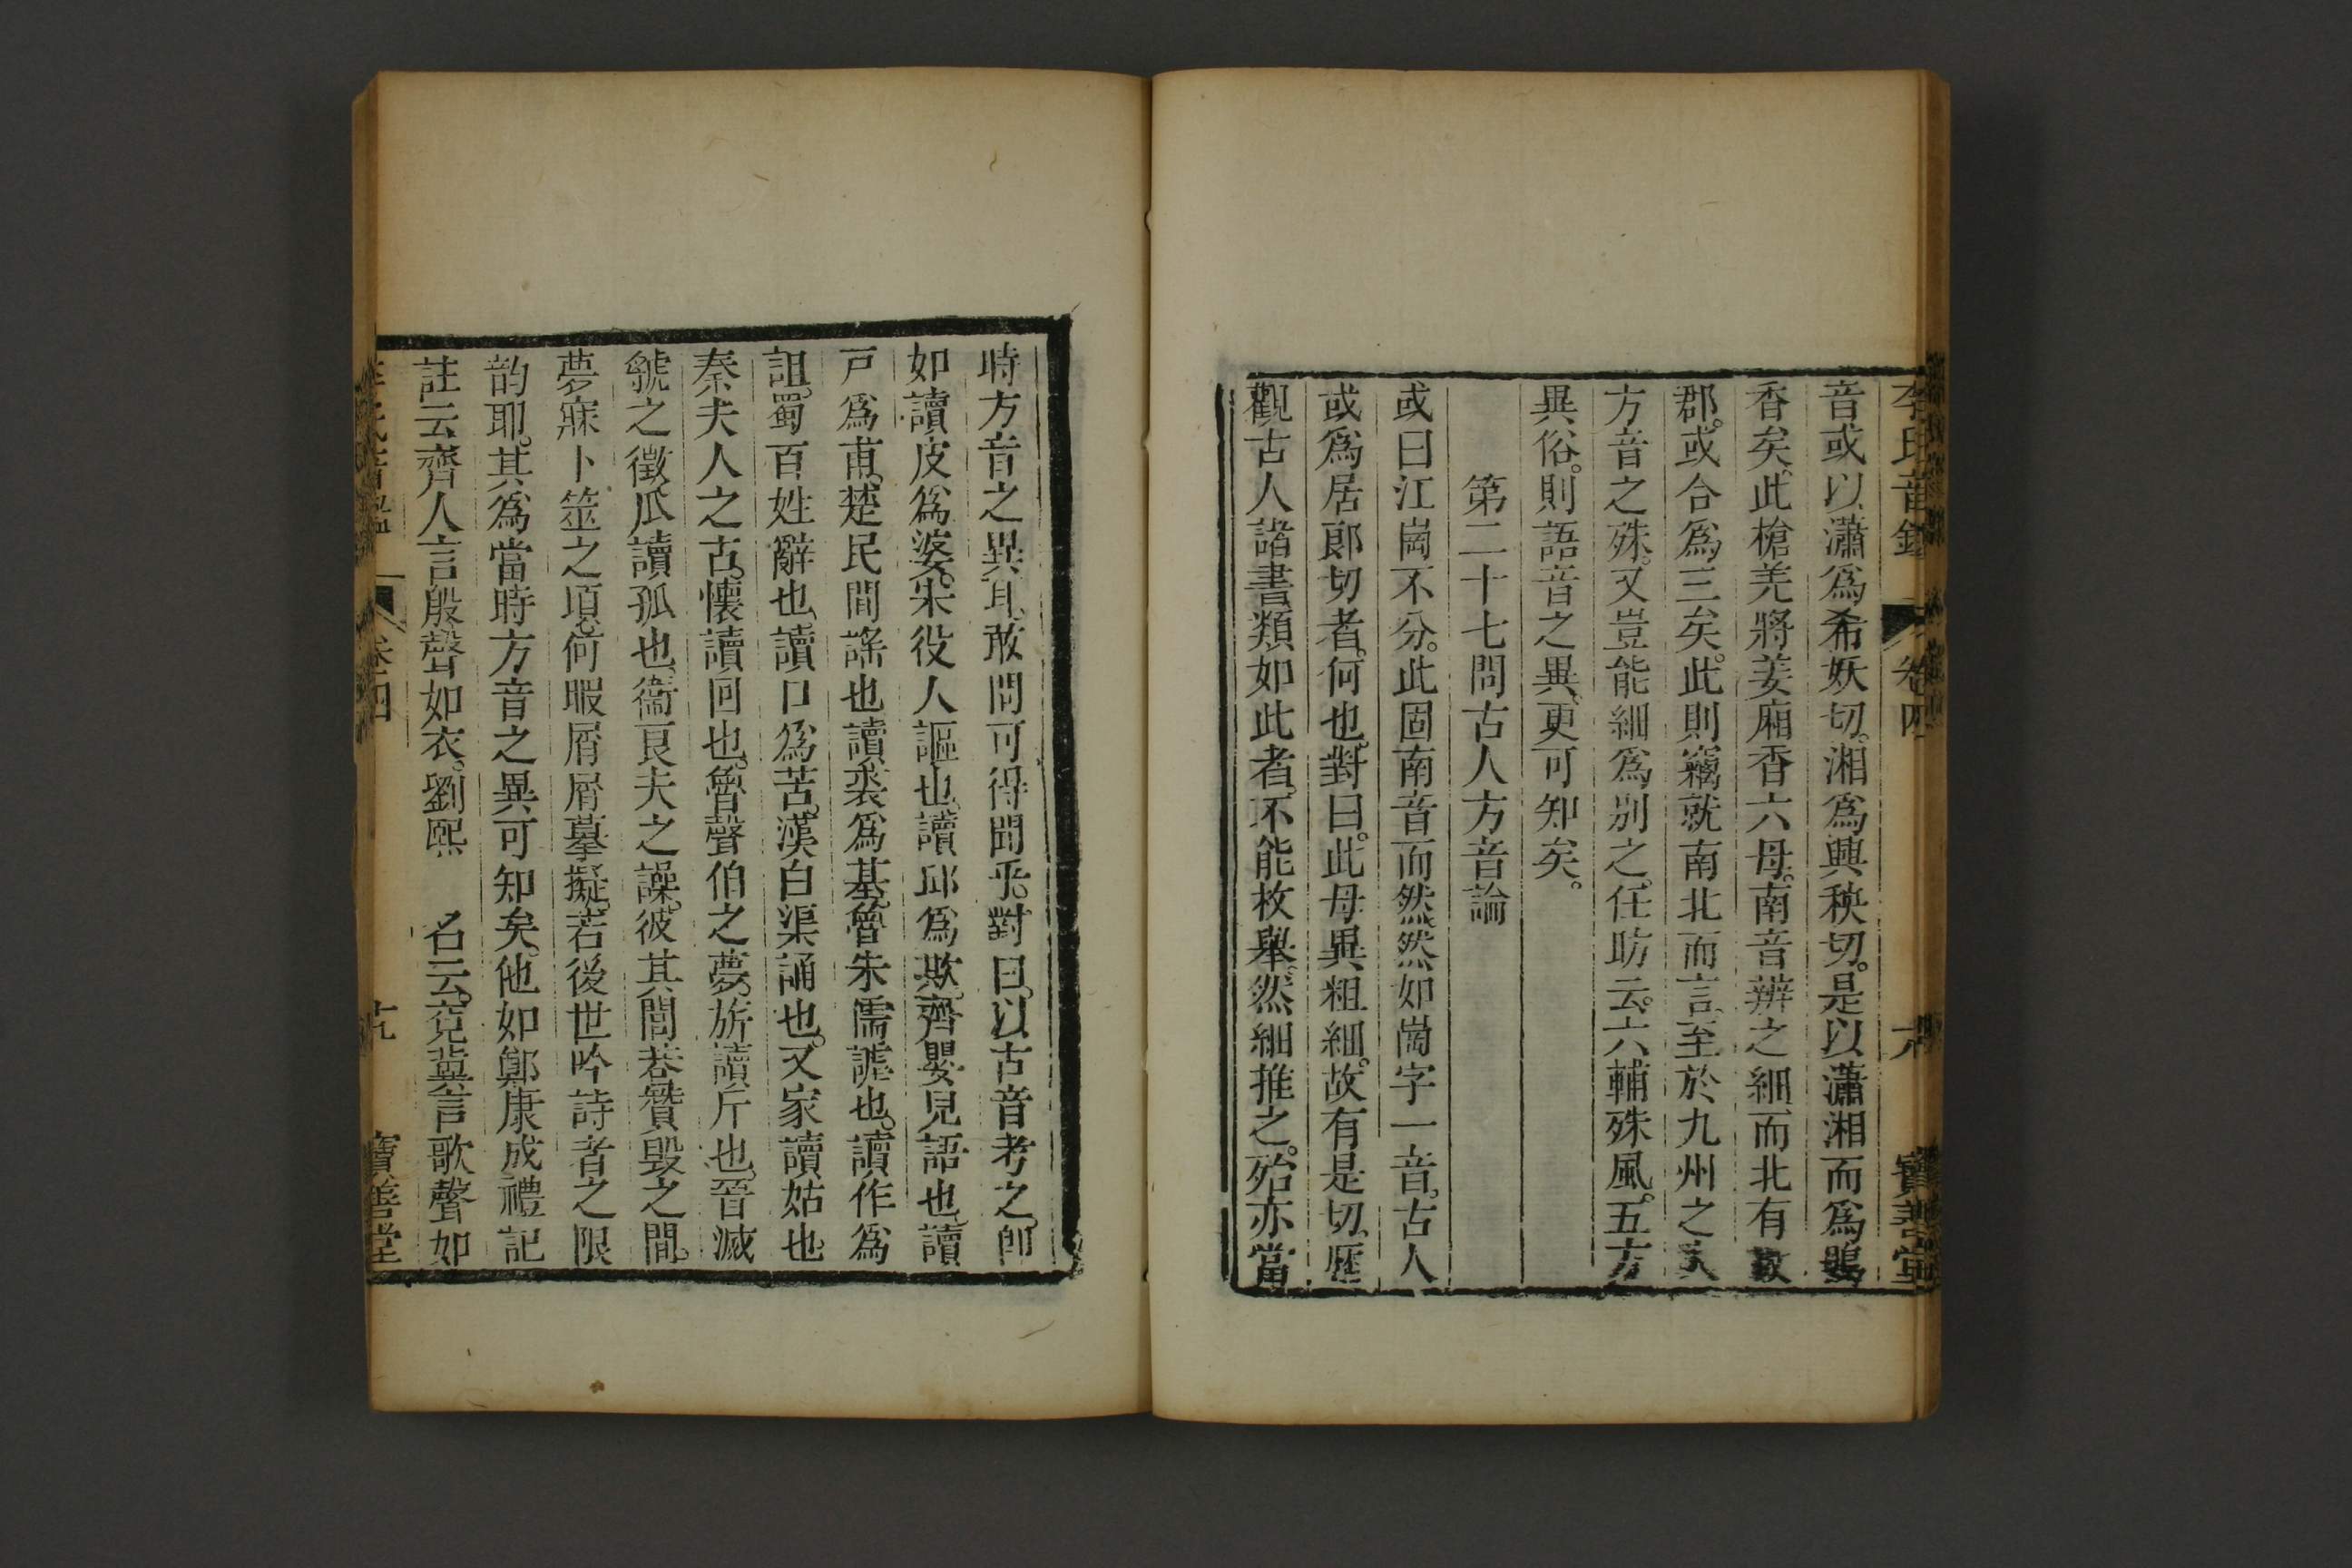 李氏音鑑 卷四 六 寶善堂
音或以瀟爲希妖切。湘爲興秧切。是以瀟湘而爲鴞
香矣。此槍羌將姜廂香六母。南音辨之細。而北有數
郡。或合爲三矣。此則竊就南北而言。至於九州之大。
方音之殊。又豈能細爲別之。任昉云。六輔殊風。五方
異俗。則語音之異。更可知矣。
第二十七問古人方音論
或曰江崗不分。此固南音而然。然如崗字一音。古人
或爲居郎切者。何也。對曰。此母異粗細。故有是切。歷
觀古人諸書類如此者。不能枚舉。然細推之。殆亦當
時方音之異耳。敢問可得聞乎。對曰。以古音考之。卽
如讀皮爲婆。宋役人謳也。讀邱爲欺。齊嬰兒語也。讀
戸爲甫。楚民間謠也。讀裘爲基。魯朱儒謔也。讀作爲
詛。蜀百姓辭也。讀口爲苦。漢白渠誦也。又家讀姑也。
秦夫人之古。懷讀回也。魯聲伯之夢。旂讀斤也。晉滅
虢之徵。瓜讀孤也。衞良夫之譟。彼其閭巷贊毀之間。
夢寐卜筮之頃。何暇屑屑摹擬。若後世吟詩者之限
韵耶。其爲當時方音之異可知矣。他如鄭康成禮記
註云。齊人言殷聲如衣。劉熙 名云。兗冀言歌聲如
卷四 十九 寶善堂